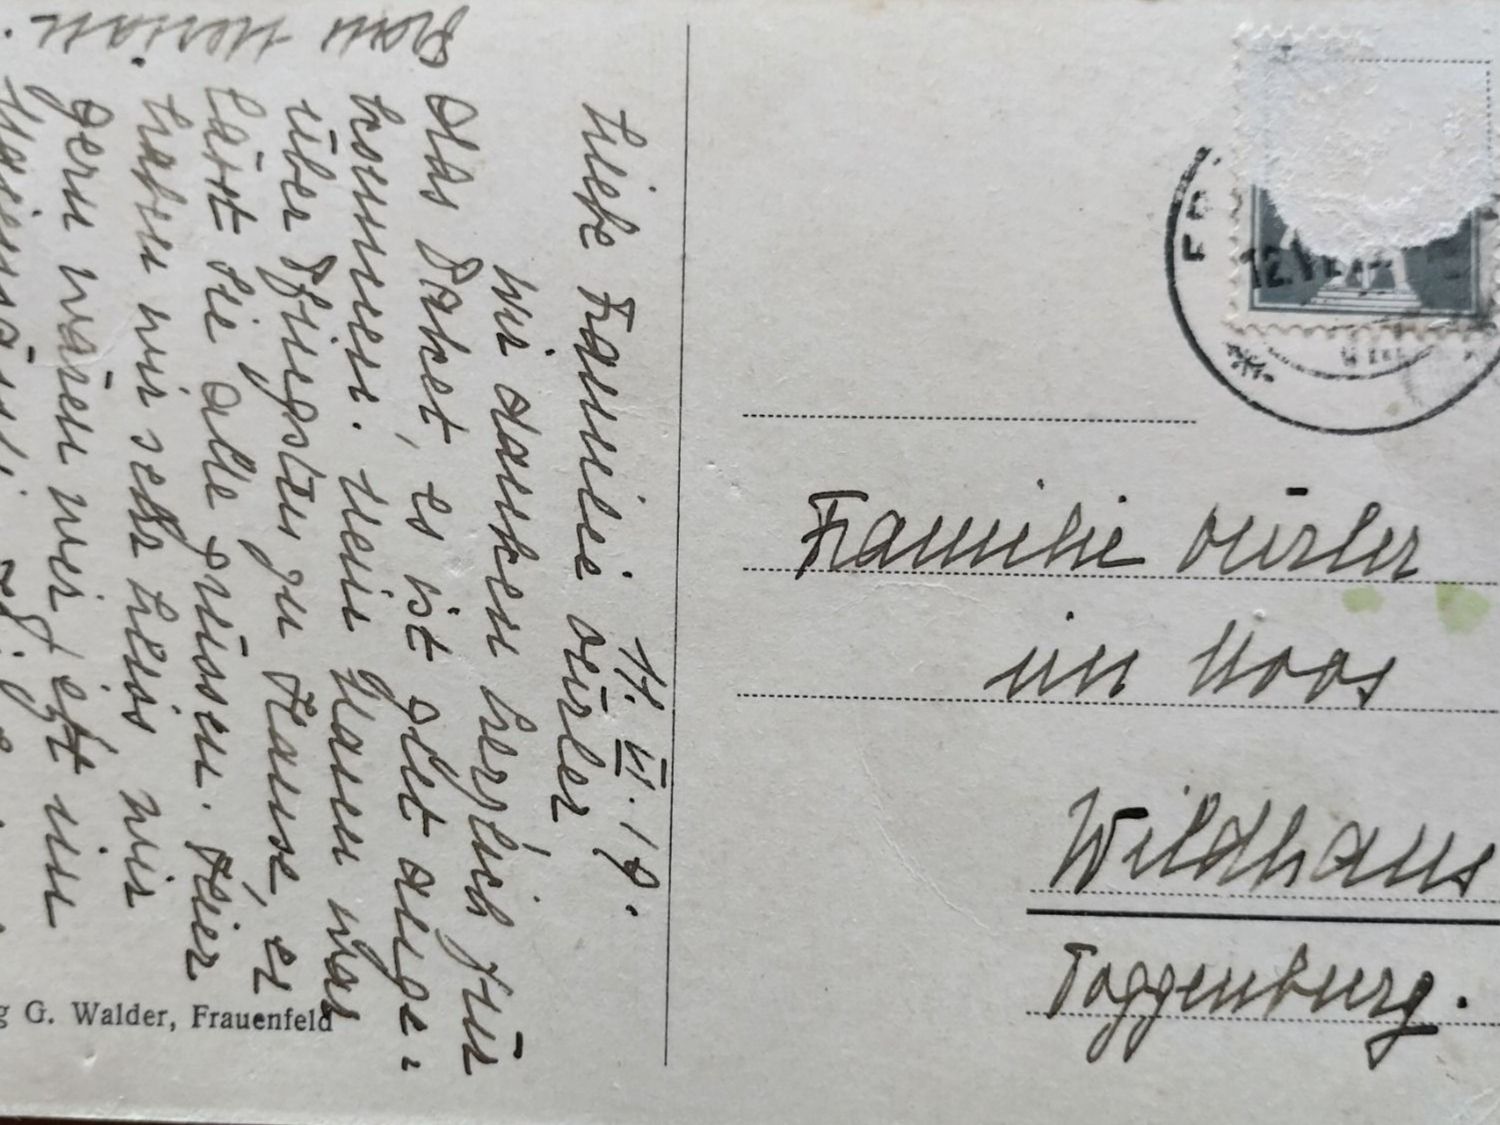 11. VI. 19.
Liebe Familie Dürler
Wir danken herzlich für
das Packet, es ist gut ange-
kommen. Mein Mann war
über Pfingsten zu Hause, er
lässt Sie alle grüssen. Hier
haben wir sehr heiss wir
gern wären wir jetzt im
Frau
G. Walder, Frauenfeld
12.VI
Familie Dürler
im Moos
Wildhaus
Toggenburg.